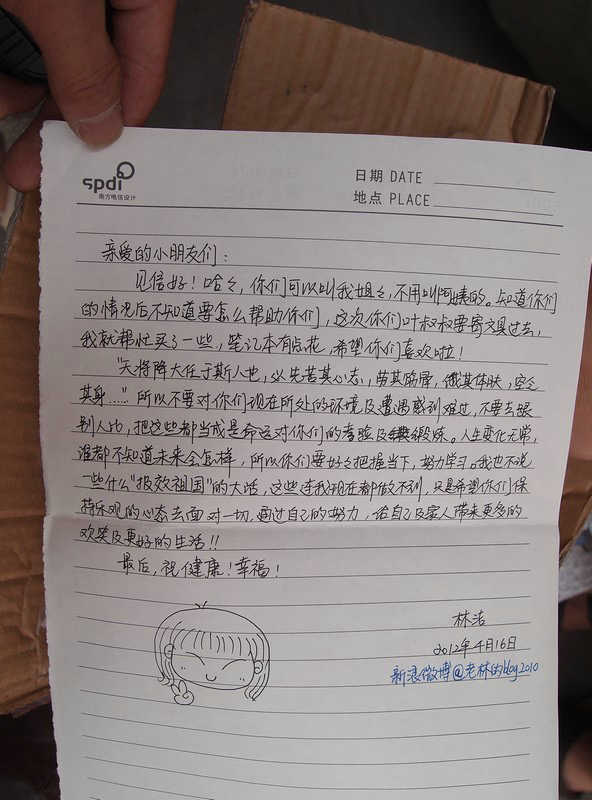 spdi
南方电信设计
日期 DATE
地点 PLACE
亲爱的小朋友们：
见信好！哈哈，你们可以叫我姐姐，不用叫阿姨的。知道你们
的情况后不知道要怎么帮助你们，这次你们叶叔叔要寄文具过去，
我就帮忙买了一些，笔记本有点花，希望你们喜欢啦！
"天将降大任于斯人也，必先苦其心志，劳其筋骨，饿其体肤，空乏
其身……"所以不要对你们现在所处的环境及遭遇感到难过，不要去跟
别人比，把这些都当成是命运对你们的考验及锻炼。人生变化无常，
谁都不知道未来会怎样，所以你们要好好把握当下，努力学习。我也不说
一些什么"报效祖国"的大话，这些连我现在都做不到，只是希望你们保
持乐观的心态去面对一切，通过自己的努力，给自己及家人带来更多的
欢笑及更好的生活！！
最后，祝健康！幸福！
林洁
2012年4月16日
新浪微博@老林的blog2010